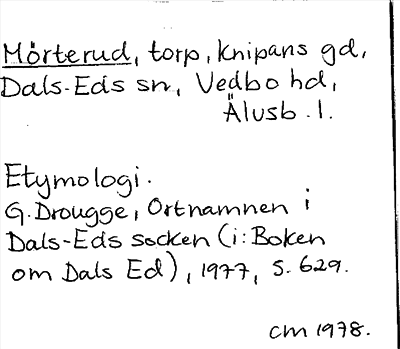 Mörterud, torp, Knipans gd,
Dals-Eds sn, Vedbo hd,
Älvsb. l.
Etymologi.
G. Drougge, Ortnamnen i
Dals-Eds socken (i: Boken
om Dals Ed), 1977, s. 629.
cm 1978.